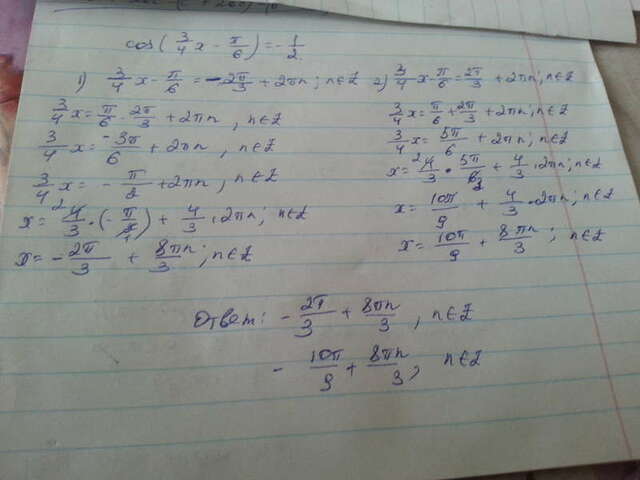 cos(3/4 x - π/6) = -1/2
1) 3/4 x - π/6 = -2π/3 + 2πn; n∈Z 2) 3/4 x - π/6 = 2π/3 + 2πn; n∈Z
3/4 x = π/6 - 2π/3 + 2πn, n∈Z
3/4 x = -3π/6 + 2πn, n∈Z
3/4 x = - π/2 + 2πn, n∈Z
x = 4/3 · (- π/2) + 4/3 · 2πn; n∈Z
x = - 2π/3 + 8πn/3; n∈Z
3/4 x = π/6 + 2π/3 + 2πn; n∈Z
3/4 x = 5π/6 + 2πn; n∈Z
x = 4/3 · 5π/6 + 4/3 · 2πn; n∈Z
x = 10π/9 + 4/3 · 2πn; n∈Z
x = 10π/9 + 8πn/3; n∈Z
Ответ: - 2π/3 + 8πn/3, n∈Z
- 10π/9 + 8πn/3; n∈Z